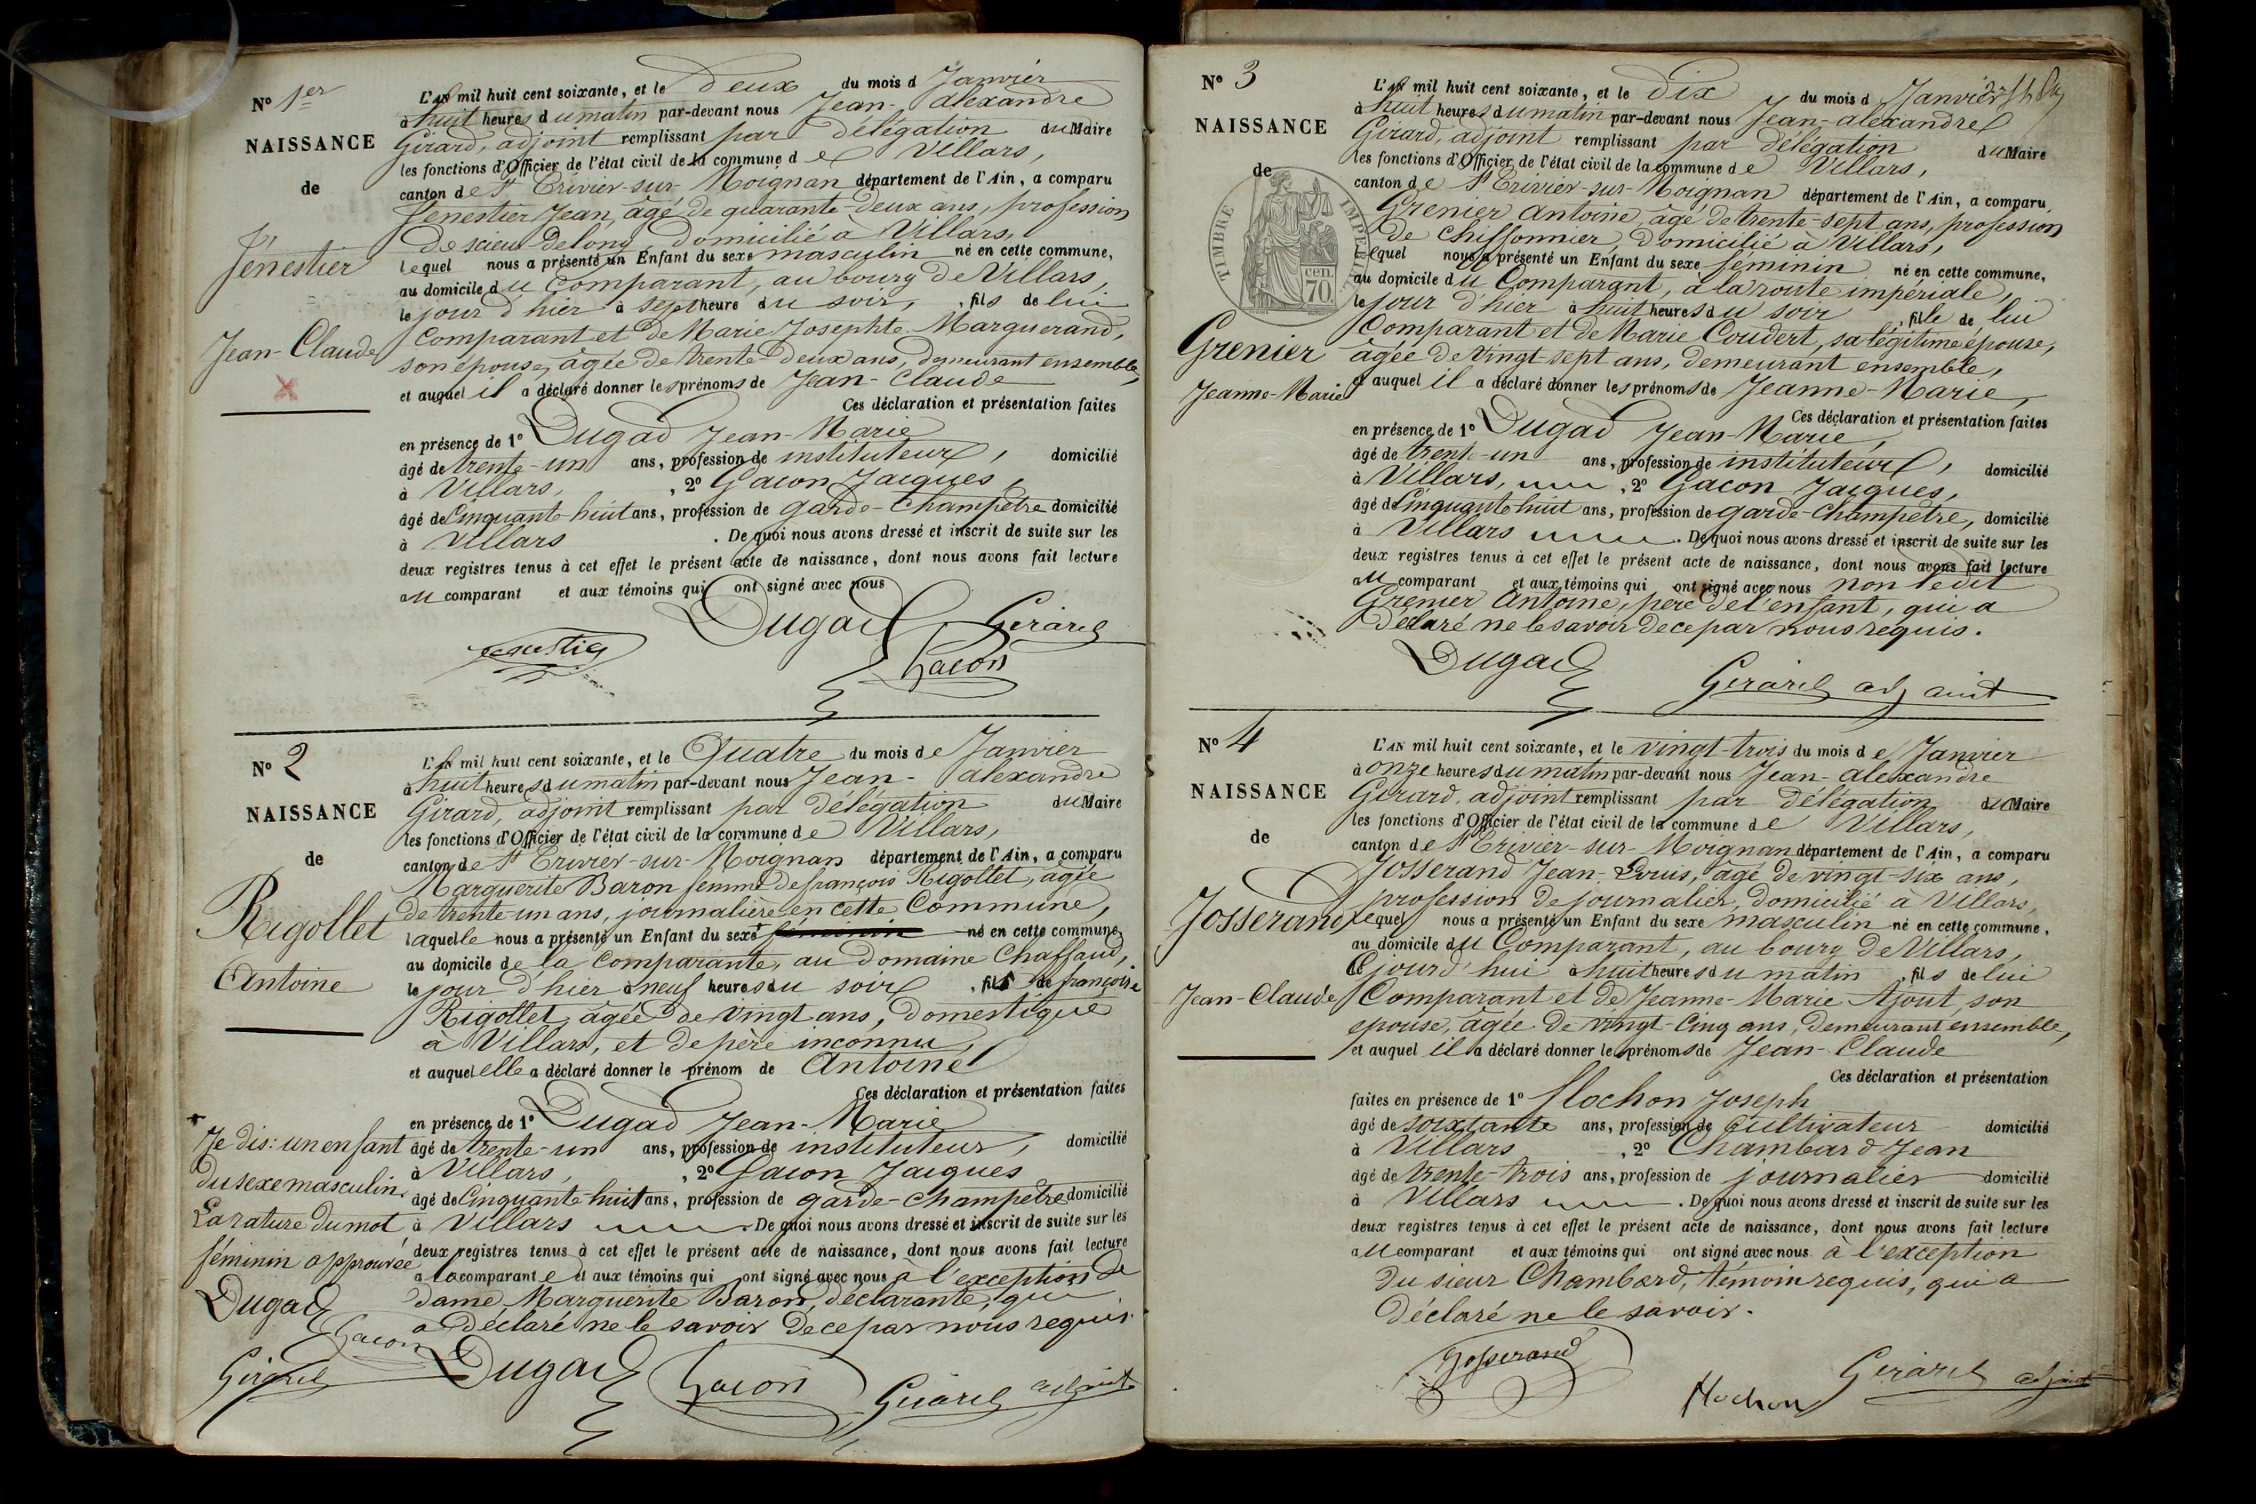 N° 1er
NAISSANCE
de
Fenestier
Jean-Claude
L'AN mil huit cent soixante, et le Deux du mois d Janvier
à huit heures du matin par-devant nous Jean-alexandre
Girard, adjoint remplissant par délégation du Maire
les fonctions d'Officier de l'état civil de la commune de Villars,
canton de St Trivier-sur-Moignan département de l'Ain, a comparu
Fenestier Jean, âgé de quarante-deux ans, profession
de scieur de long, domicilié à Villars,
lequel nous a présenté un Enfant du sexe masculin né en cette commune,
au domicile du Comparant, au bourg de Villars,
le jour d'hier à sept heure du soir, fils de lui
Comparant et de Marie Josephte Marguerand,
son épouse, âgée de trente-deux ans, demeurant ensemble,
et auquel il a déclaré donner les prénoms de Jean-Claude
Ces déclaration et présentation faites
en présence de 1° Dugad Jean-Marie
âgé de trente-un ans, profession de instituteur, domicilié
à Villars, , 2° Gacon Jacques,
âgé de Cinquante-huit ans, profession de garde-Champêtre domicilié
à Villars . De quoi nous avons dressé et inscrit de suite sur les
deux registres tenus à cet effet le présent acte de naissance, dont nous avons fait lecture
au comparant et aux témoins qui ont signé avec nous
Dugad Girard
fenestier Gacon
N° 2
NAISSANCE
de
Rigollet
Antoine
L'AN mil huit cent soixante, et le Quatre du mois de Janvier
à huit heures du matin par-devant nous Jean-alexandre
Girard, adjoint remplissant par délégation du Maire
les fonctions d'Officier de l'état civil de la commune de Villars,
canton de St Trivier-sur-Moignan département de l'Ain, a comparu
Marguerite Baron femme de françois Rigollet, âgée
de trente-un ans, journalière en cette Commune,
laquelle nous a présenté un Enfant du sexe féminin né en cette commune,
au domicile de la Comparante, au domaine Chaffaud,
le jour d'hier à neuf heures du soir , fils de françoise
Rigollet, âgée de vingt ans, domestique
à Villars, et de père inconnu,
et auquel elle a déclaré donner le prénom de Antoine
Ces déclaration et présentation faites
en présence de 1° Dugad Jean-Marie
âgé de trente-un ans, profession de instituteur, domicilié
à Villars, , 2° Gacon Jacques
âgé de Cinquante-huit ans, profession de garde-Champêtre domicilié
à Villars . De quoi nous avons dressé et inscrit de suite sur les
deux registres tenus à cet effet le présent acte de naissance, dont nous avons fait lecture
a la comparante et aux témoins qui ont signé avec nous à l'exception de
dame Marguerite Baron, déclarante, qui
a déclaré ne le savoir de ce par nous requis.
Je dis: un enfant
du sexe masculin.
La rature du mot
féminin approuvée
Dugad
Gacon
Girard
Dugad Gacon Girard adjoint
N° 3
NAISSANCE
de
TIMBRE IMPÉRIAL
CENT. 70
Grenier
Jeanne-Marie
L'AN mil huit cent soixante, et le dix du mois d Janvier
à huit heures du matin par-devant nous Jean-alexandre
Girard, adjoint remplissant par délégation du Maire
les fonctions d'Officier de l'état civil de la commune de Villars,
canton de St Trivier-sur-Moignan département de l'Ain, a comparu
Grenier Antoine âgé de trente-sept ans, profession
de Chiffonnier, domicilié à Villars,
lequel nous a présenté un Enfant du sexe féminin né en cette commune,
au domicile du Comparant, à la route impériale,
le jour d'hier à huit heures du soir , fille de lui
Comparant et de Marie Coudert, sa légitime épouse,
âgée de vingt sept ans, demeurant ensemble,
et auquel il a déclaré donner les prénoms de Jeanne-Marie,
Ces déclaration et présentation faites
en présence de 1° Dugad Jean-Marie,
âgé de trente-un ans, profession de instituteur, domicilié
à Villars, , 2° Gacon Jacques,
âgé de Cinquante huit ans, profession de garde-Champêtre, domicilié
à Villars . De quoi nous avons dressé et inscrit de suite sur les
deux registres tenus à cet effet le présent acte de naissance, dont nous avons fait lecture
au comparant et aux témoins qui ont signé avec nous non ledit
Grenier Antoine, père de l'enfant, qui a
Déclaré ne le savoir de ce par nous requis.
Dugad Girard adjoint
N° 4
NAISSANCE
de
Josserand
Jean-Claude
L'AN mil huit cent soixante, et le vingt-trois du mois de Janvier
à onze heures du matin par-devant nous Jean-alexandre
Girard, adjoint remplissant par délégation du Maire
les fonctions d'Officier de l'état civil de la commune de Villars,
canton de St Trivier-sur-Moignan département de l'Ain, a comparu
Josserand Jean-Louis, âgé de vingt-six ans,
profession de journalier, domicilié à Villars,
lequel nous a présenté un Enfant du sexe masculin né en cette commune,
au domicile du Comparant, au bourg de Villars,
ce jourd'hui à huit heures du matin , fils de lui
Comparant et de Jeanne-Marie Ajout, son
epouse, âgée de vingt-cinq ans, demeurant ensemble,
et auquel il a déclaré donner les prénoms de Jean-Claude
Ces déclaration et présentation
faites en présence de 1° Flochon Joseph
âgé de soixante ans, profession de Cultivateur domicilié
à Villars , 2° Chambard Jean
âgé de trente-trois ans, profession de journalier domicilié
à Villars . De quoi nous avons dressé et inscrit de suite sur les
deux registres tenus à cet effet le présent acte de naissance, dont nous avons fait lecture
au comparant et aux témoins qui ont signé avec nous à l'exception
du sieur Chambard, témoin requis, qui a
déclaré ne le savoir.
Josserand
Flochon Girard adjoint